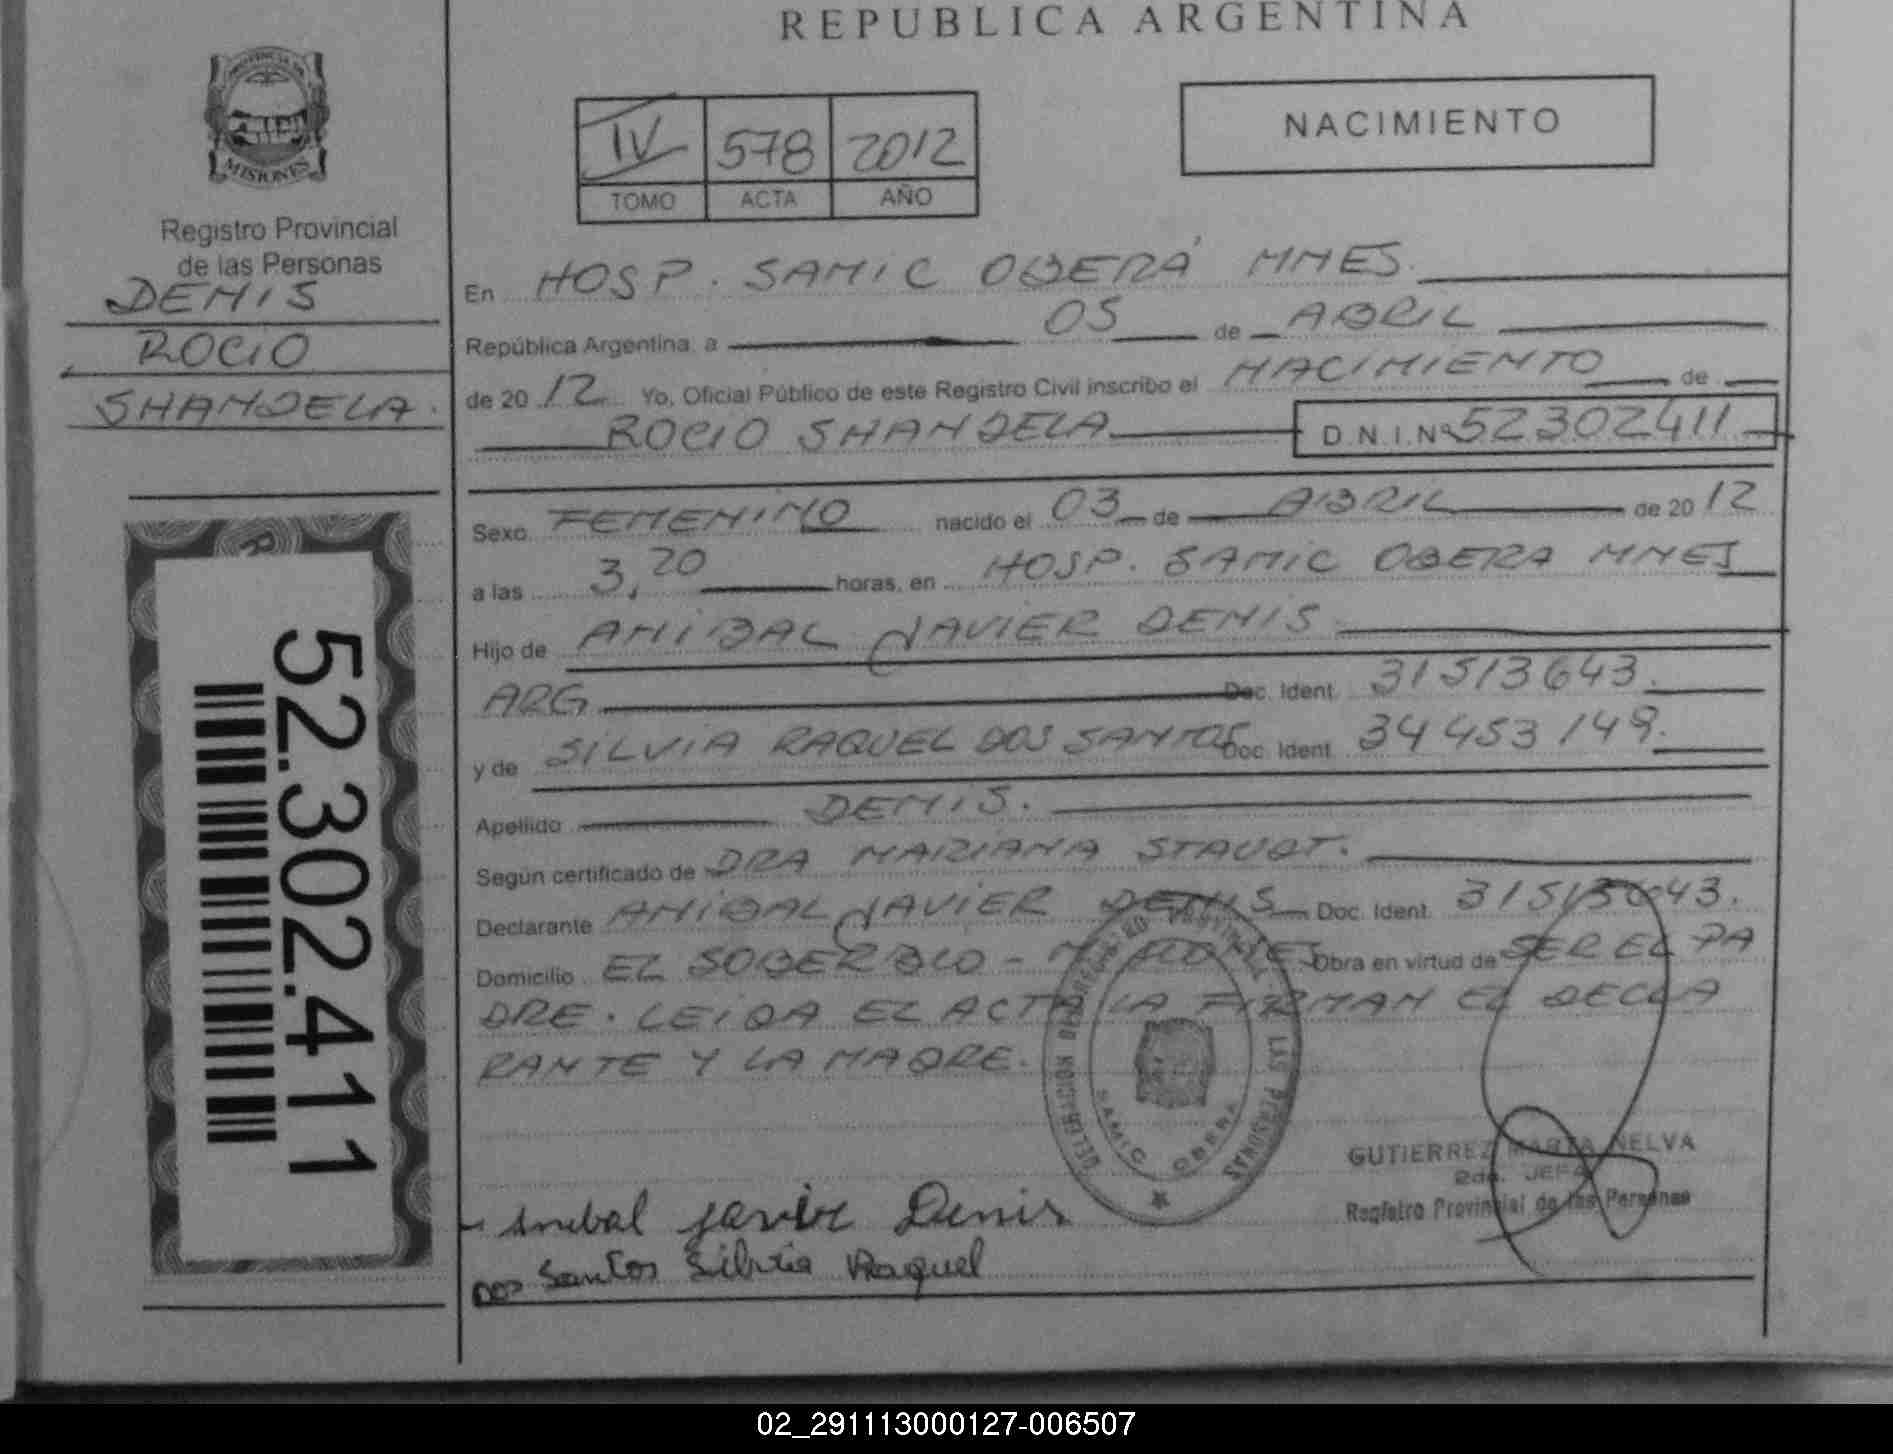 REPUBLICA ARGENTINA
PROVINCIA DE
MISIONES
Registro Provincial
de las Personas
DENIS
ROCIO
SHANDELA.
52.302.411
IV 578 2012
TOMO ACTA AÑO
NACIMIENTO
En HOSP. SAMIC OBERÁ MNES.
República Argentina, a 05 de ABRIL
de 20 12 Yo, Oficial Público de este Registro Civil inscribo el NACIMIENTO de
ROCIO SHANDELA D.N.I.Nº 52302411
Sexo FEMENINO nacido el 03 de ABRIL de 20 12
a las 3,20 horas, en HOSP. SAMIC OBERA MNES
Hijo de ANIBAL JAVIER DENIS
ARG Doc. Ident. 31513643.
y de SILVIA RAQUEL DOS SANTOS Doc. Ident. 34453149.
Apellido DENIS.
Según certificado de DRA MARIANA STAUDT.
Declarante ANIBAL JAVIER DENIS Doc. Ident. 31513643.
Domicilio EL SOBERBIO - MISIONES Obra en virtud de SER EL PA
DRE. LEIDA EL ACTA LA FIRMAN EL DECLA
RANTE Y LA MADRE.
DELEGACION DE REGISTRO PROVINCIAL DE LAS PERSONAS
SAMIC OBERA
GUTIERREZ MARTA NELVA
2da. JEFA
Registro Provincial de las Personas
Anibal Javier Denis
Dos Santos Silvia Raquel
02_291113000127-006507